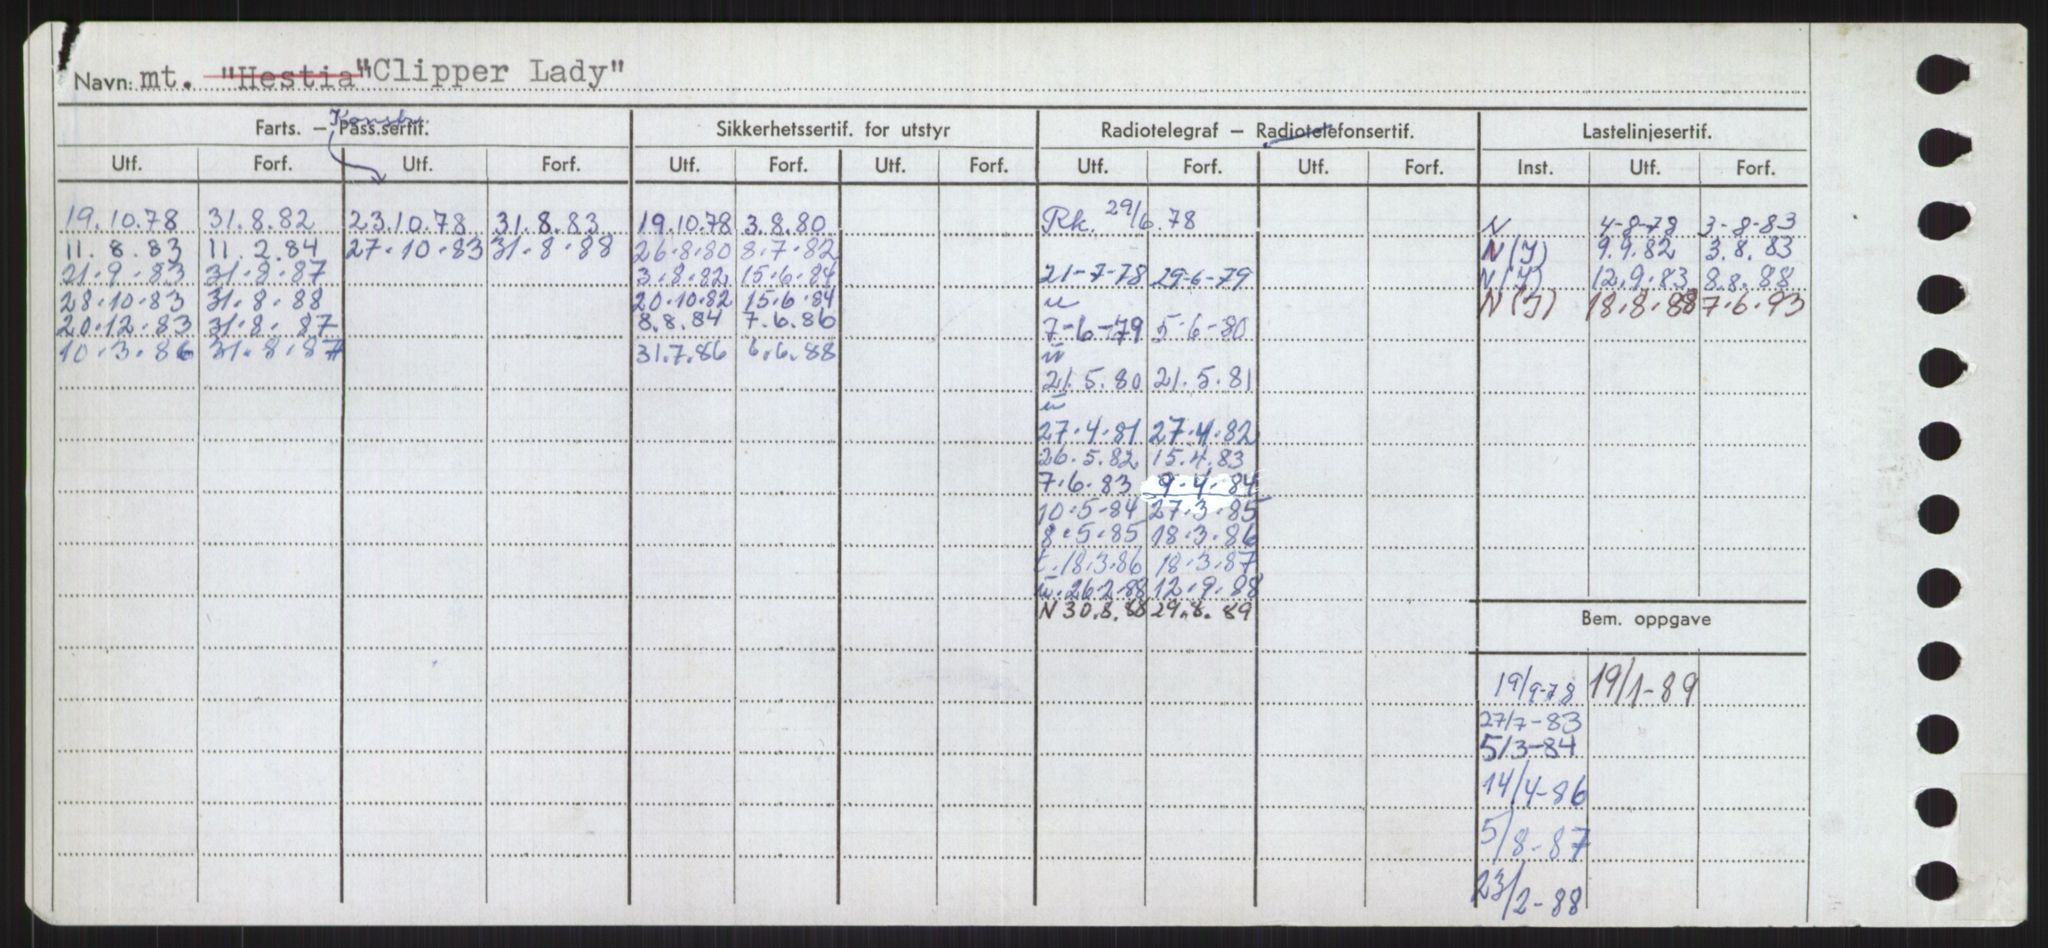 Navn: mt. "Hestia" "Clipper Lady"
Farts. – Pass.sertif. Konstr. Sikkerhetssertif. for utstyr Radiotelegraf – Radiotelefonsertif. Lastelinjesertif.
Utf. Forf. Utf. Forf. Utf. Forf. Utf. Forf. Utf. Forf. Utf. Forf. Inst. Utf. Forf.
19.10.78 31.8.82 23.10.78 31.8.83 19.10.78 3.8.80 Rk. 29/6.78 N 4-8-78 3-8-83
11.8.83 11.2.84 27.10.83 31.8.88 26.8.80 8.7.82 N(I) 9.9.82 3.8.83
21.9.83 31.8.87 3.8.82 15.6.84 21-7-78 29-6-79 N(I) 12.9.83 8.8.88
28.10.83 31.8.88 20.10.82 15.6.84 N(I) 18.8.88 7.6.93
20.12.83 31.8.87 8.8.84 7.6.86 7-6-79 5-6-80
10.3.86 31.8.87 31.7.86 6.6.88
21.5.80 21.5.81
27.4.81 27.4.82
26.5.82 15.4.83
7.6.83 9.4.84
10.5.84 27.3.85
8.5.85 18.3.86
t.18.3.86 18.3.87
26.2.88 12.9.88
N 30.8.88 29.8.89
Bem. oppgave
19/9-78 19/1-89
27/7-83
5/3-84
14/4-86
5/8-87
23/2-88